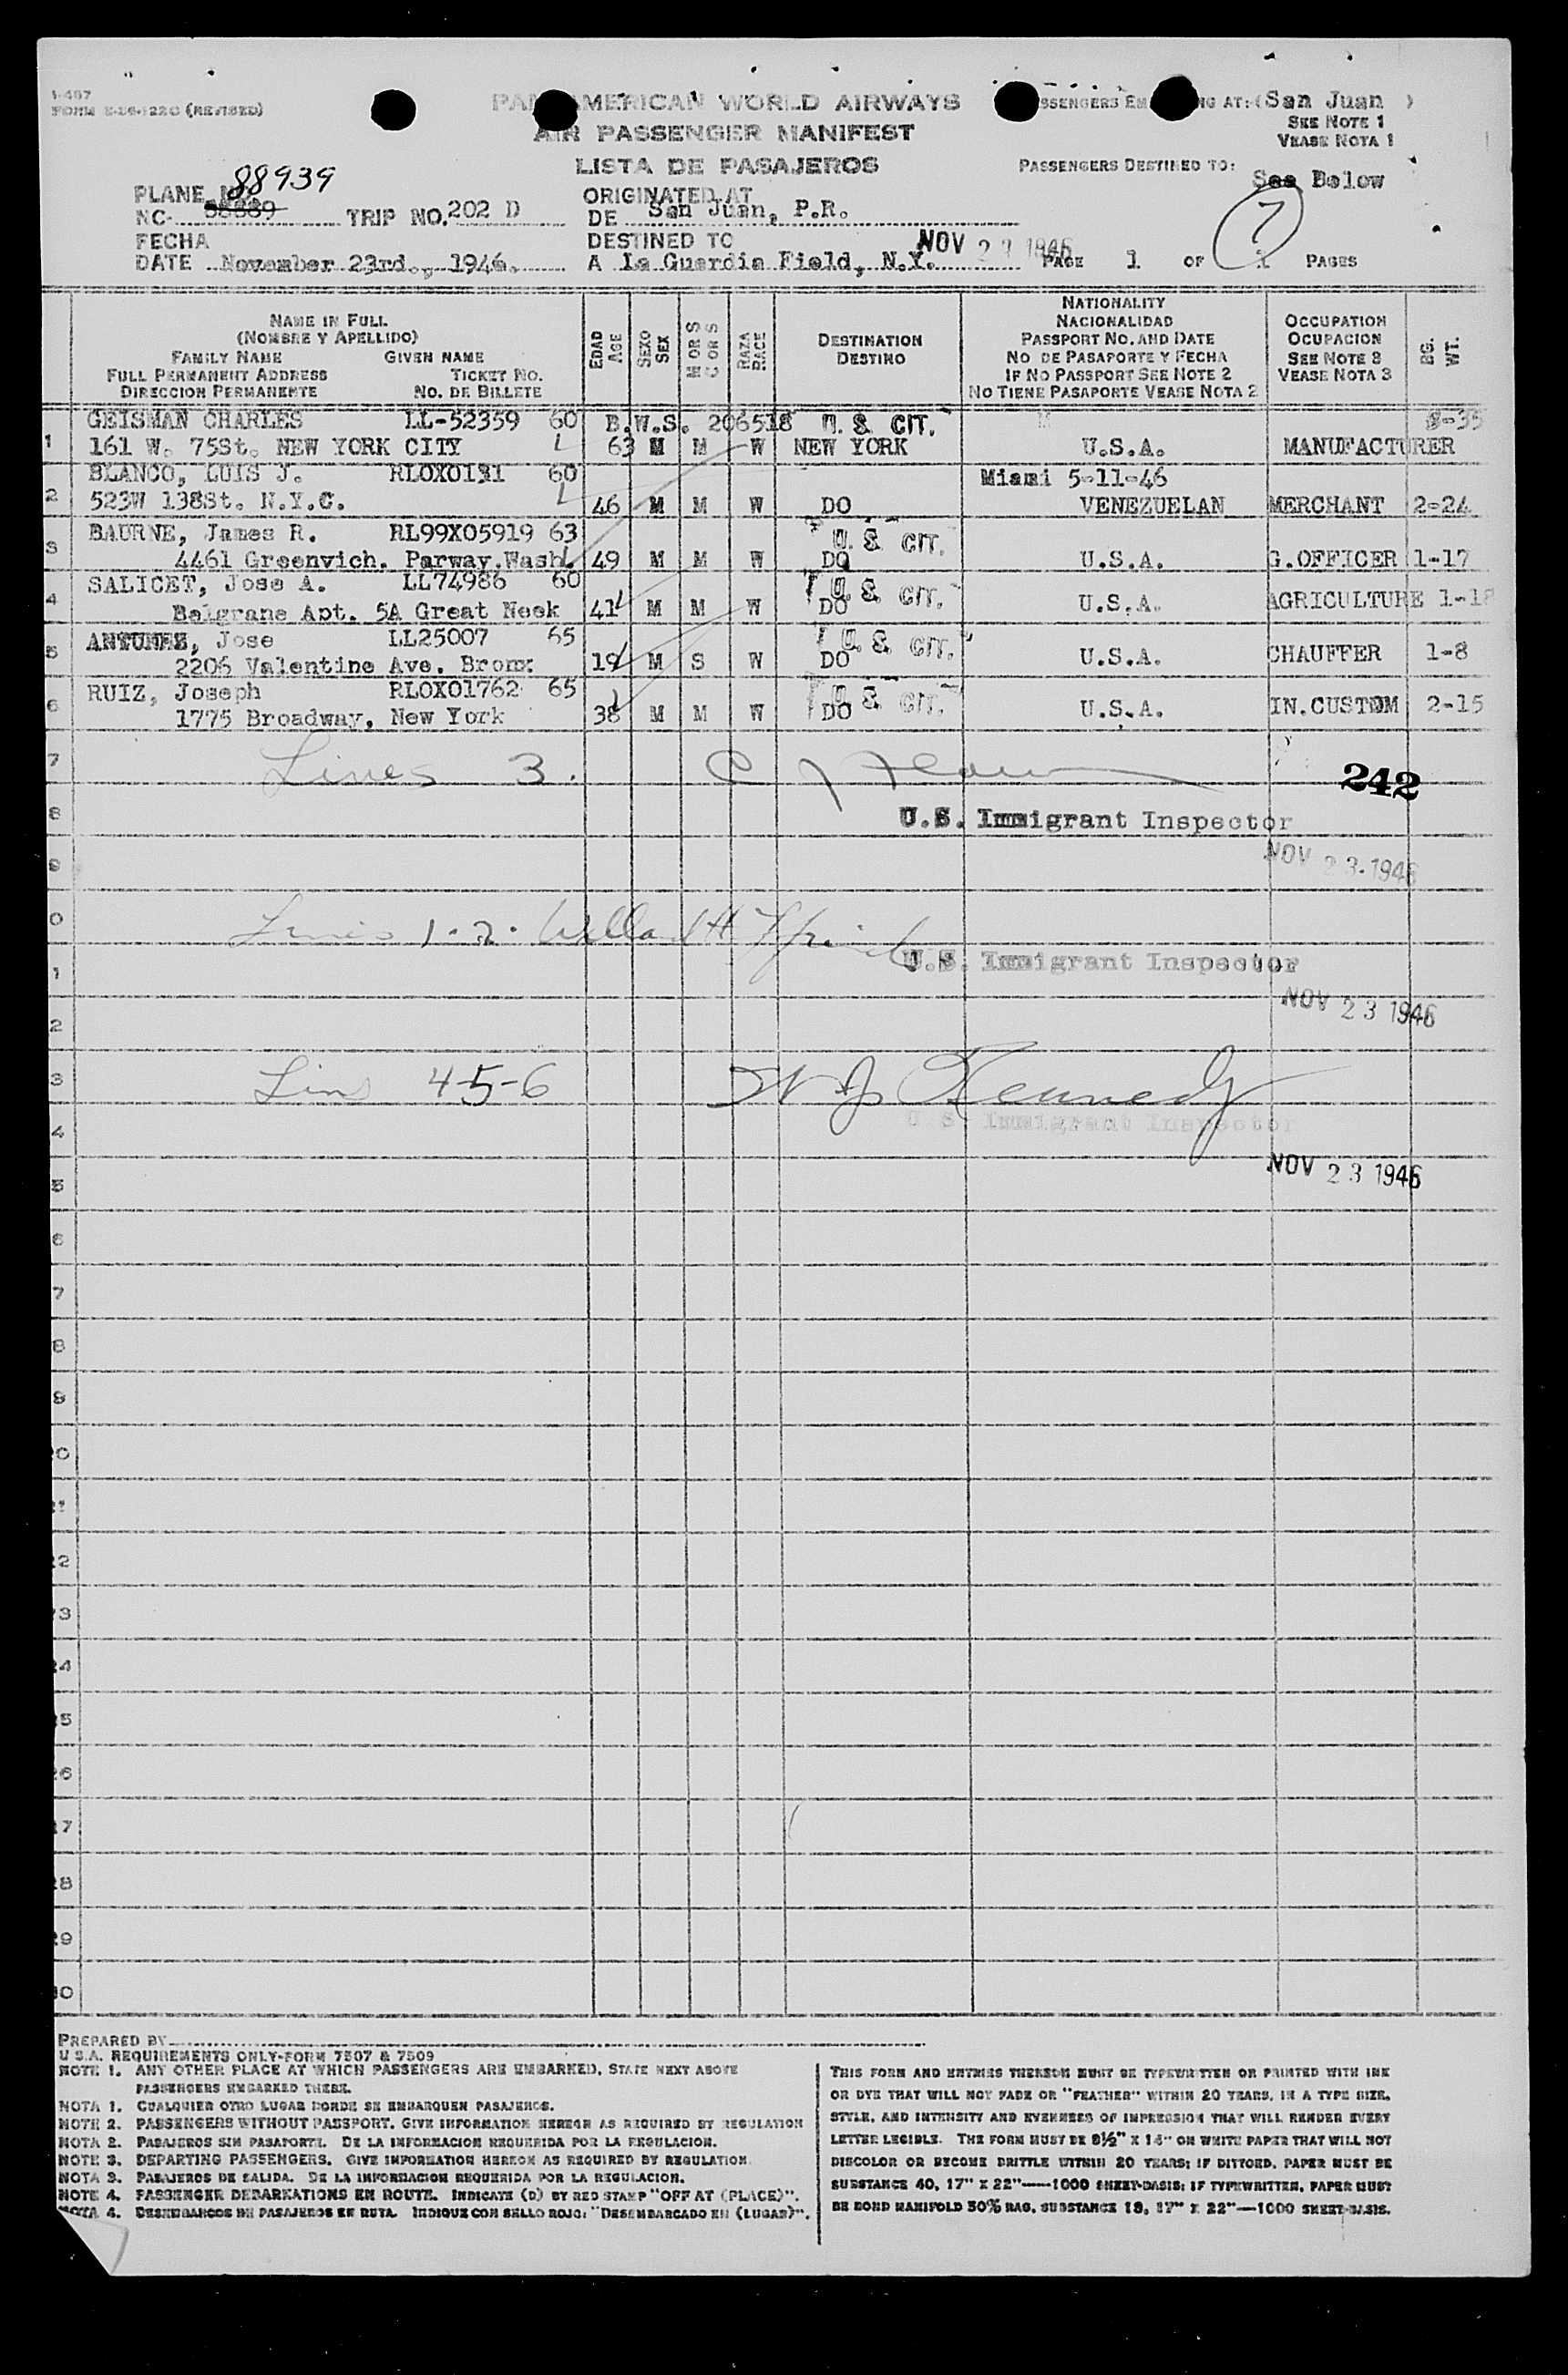 I-487
FORM E-26-122C (REVISED)
PAN AMERICAN WORLD AIRWAYS
AIR PASSENGER MANIFEST
LISTA DE PASAJEROS
PASSENGERS EMBARKING AT: (San Juan )
SEE NOTE 1
VEASE NOTA 1
PASSENGERS DESTINED TO:
See Below
88939
PLANE NO.
NC- 88889 TRIP NO. 202 D
ORIGINATED AT
DE San Juan, P.R.
7
FECHA
DATE November 23rd., 1946.
DESTINED TO
A La Guardia Field, N.Y.
NOV 23 1946
PAGE 1 OF 1 PAGES
NAME IN FULL
(NOMBRE Y APELLIDO)
FAMILY NAME GIVEN NAME
FULL PERMANENT ADDRESS TICKET NO.
DIRECCION PERMANENTE NO. DE BILLETE
EDAD AGE
SEXO SEX
M OR S C OR S
RAZA RACE
DESTINATION
DESTINO
NATIONALITY
NACIONALIDAD
PASSPORT NO. AND DATE
NO DE PASAPORTE Y FECHA
IF NO PASSPORT SEE NOTE 2
NO TIENE PASAPORTE VEASE NOTA 2
OCCUPATION
OCUPACION
SEE NOTE 3
VEASE NOTA 3
BG. WT.
GEISMAN CHARLES LL-52359 60 B.W.S. 206518 U.S. CIT. M 8-35
1 161 W. 75St. NEW YORK CITY 63 M M W NEW YORK U.S.A. MANUFACTURER
BLANCO, LUIS J. RLOX0131 60 Miami 5-11-46
2 523W 138St. N.Y.C. 46 M M W DO VENEZUELAN MERCHANT 2-24
BAURNE, James R. RL99X05919 63 U.S. CIT.
3 4461 Greenvich. Parway.Wash. 49 M M W DO U.S.A. G.OFFICER 1-17
SALICET, Jose A. LL74986 60 U.S. CIT.
4 Belgrane Apt. 5A Great Neek 41 M M W DO U.S.A. AGRICULTURE 1-18
ANTUNEZ, Jose LL25007 65 U.S. CIT.
5 2206 Valentine Ave. Bronx 19 M S W DO U.S.A. CHAUFFER 1-8
RUIZ, Joseph RLOX01762 65 U.S. CIT.
6 1775 Broadway, New York 38 M M W DO U.S.A. IN.CUSTOM 2-15
7 Lines 3.
242
8 U.S. Immigrant Inspector
9 NOV 23 1946
0 Lines 1.2.
1 U.S. Immigrant Inspector
2 NOV 23 1946
3 Lines 4-5-6 W J Kennedy
4 U.S. Immigrant Inspector
5 NOV 23 1946
6
7
8
9
20
21
22
23
24
25
26
27
28
29
30
PREPARED BY
U.S.A. REQUIREMENTS ONLY-FORM 7507 & 7509
NOTE 1. ANY OTHER PLACE AT WHICH PASSENGERS ARE EMBARKED, STATE NEXT ABOVE
PASSENGERS EMBARKED THERE.
NOTA 1. CUALQUIER OTRO LUGAR DONDE SE EMBARQUEN PASAJEROS.
NOTE 2. PASSENGERS WITHOUT PASSPORT. GIVE INFORMATION HEREON AS REQUIRED BY REGULATION
NOTA 2. PASAJEROS SIN PASAPORTE. DE LA INFORMACION REQUERIDA POR LA REGULACION.
NOTE 3. DEPARTING PASSENGERS. GIVE INFORMATION HEREON AS REQUIRED BY REGULATION.
NOTA 3. PASAJEROS DE SALIDA. DE LA INFORMACION REQUERIDA POR LA REGULACION.
NOTE 4. PASSENGER DEBARKATIONS EN ROUTE. INDICATE (D) BY RED STAMP "OFF AT (PLACE)".
NOTA 4. DESEMBARCOS DE PASAJEROS EN RUTA. INDIQUE CON SELLO ROJO: "DESEMBARCADO EN (LUGAR)".
THIS FORM AND ENTRIES THEREON MUST BE TYPEWRITTEN OR PRINTED WITH INK
OR DYE THAT WILL NOT FADE OR "FEATHER" WITHIN 20 YEARS, IN A TYPE SIZE,
STYLE, AND INTENSITY AND EVENNESS OF IMPRESSION THAT WILL RENDER EVERY
LETTER LEGIBLE. THE FORM MUST BE 8½" X 14" ON WHITE PAPER THAT WILL NOT
DISCOLOR OR BECOME BRITTLE WITHIN 20 YEARS; IF DITTOED, PAPER MUST BE
SUBSTANCE 40, 17" X 22"—1000 SHEET-BASIS; IF TYPEWRITTEN, PAPER MUST
BE BOND MANIFOLD 50% RAG, SUBSTANCE 18, 17" X 22"—1000 SHEET-BASIS.